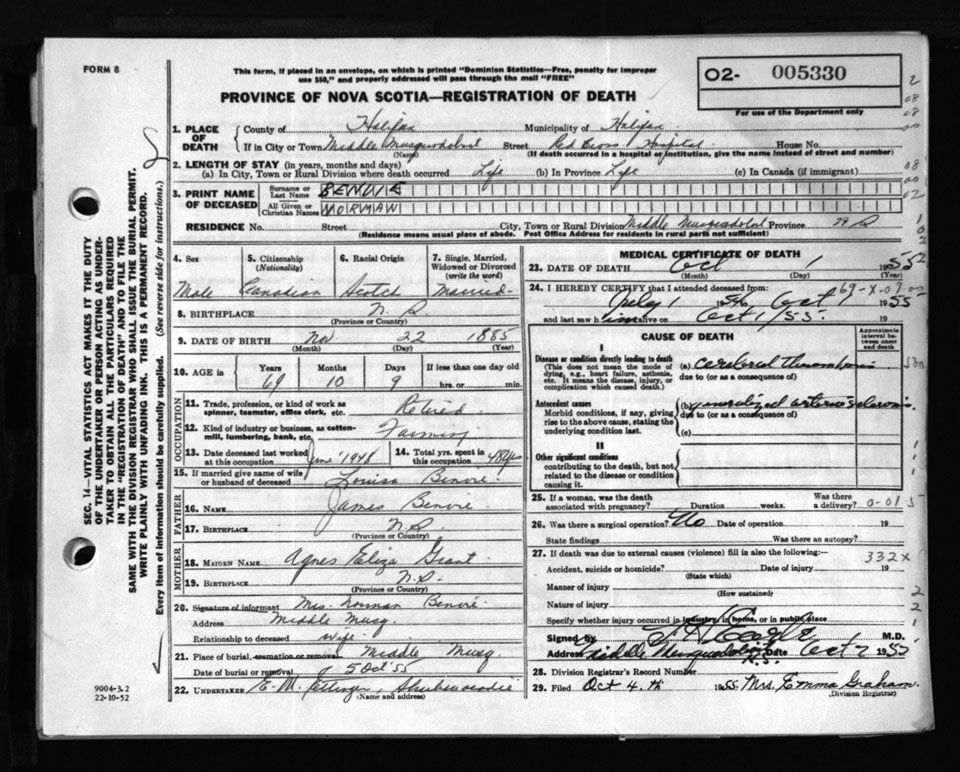 FORM 8
This form, if placed in an envelope, on which is printed "Dominion Statistics—Free, penalty for improper
use $50," and properly addressed will pass through the mail "FREE"
O2- 005330
For use of the Department only
PROVINCE OF NOVA SCOTIA—REGISTRATION OF DEATH
1. PLACE OF DEATH
County of Halifax Municipality of Halifax
If in City or Town Middle Musquodoboit Street Red Cross Hospital House No.
(Name) (If death occurred in a hospital or institution, give the name instead of street and number)
2. LENGTH OF STAY (in years, months and days)
(a) In City, Town or Rural Division where death occurred Life (b) In Province Life (c) In Canada (if immigrant)
3. PRINT NAME OF DECEASED
Surname or Last Name BENVIE
All Given or Christian Names NORMAN
RESIDENCE No. Street City, Town or Rural Division Middle Musquodoboit Province N.S.
(Residence means usual place of abode. Post Office Address for residents in rural parts not sufficient)
4. Sex
Male
5. Citizenship
(Nationality)
Canadian
6. Racial Origin
Scotch
7. Single, Married, Widowed or Divorced
(write the word)
Married
8. BIRTHPLACE N.S.
(Province or Country)
9. DATE OF BIRTH Nov 22 1885
(Month) (Day) (Year)
10. AGE in Years Months Days If less than one day old
69 10 9 hrs. or min.
OCCUPATION
11. Trade, profession, or kind of work as spinner, teamster, office clerk, etc. Retired
12. Kind of industry or business, as cotton-mill, lumbering, bank, etc. Farming
13. Date deceased last worked at this occupation June 1948 14. Total yrs. spent in this occupation 48 yrs
15. If married give name of wife or husband of deceased Louisa Benvie
FATHER
16. NAME James Benvie
17. BIRTHPLACE N.S.
(Province or Country)
MOTHER
18. MAIDEN NAME Agnes Eliza Grant
19. BIRTHPLACE N.S.
(Province or Country)
20. Signature of informant Mrs. Norman Benvie
Address Middle Musq.
Relationship to deceased wife
21. Place of burial, cremation or removal Middle Musq
Date of burial or removal 5 Oct '55
22. UNDERTAKER E. M. Ettinger, Shubenacadie
(Name and address)
MEDICAL CERTIFICATE OF DEATH
23. DATE OF DEATH Oct 1 1955
(Month) (Day) (Year)
24. I HEREBY CERTIFY that I attended deceased from: 69-X-09-00
July 1 Oct 1955
and last saw him alive on Oct 1/55. 19
CAUSE OF DEATH
Approximate interval between onset and death
I
Disease or condition directly leading to death
(This does not mean the mode of dying, e.g., heart failure, asthenia, etc. It means the disease, injury, or complication which caused death.)
(a) cerebral thrombosis
due to (or as a consequence of)
Antecedent causes
Morbid conditions, if any, giving rise to the above cause, stating the underlying condition last.
(b) generalized arteriosclerosis
due to (or as a consequence of)
(c)
II
Other significant conditions
contributing to the death, but not related to the disease or condition causing it.
25. If a woman, was the death associated with pregnancy? Duration weeks. Was there a delivery?
0-01
26. Was there a surgical operation? No Date of operation 19
State findings Was there an autopsy?
27. If death was due to external causes (violence) fill in also the following:— 332X
Accident, suicide or homicide? Date of injury 19
(State which)
Manner of injury
(How sustained)
Nature of injury
Specify whether injury occurred in industry, in home, or in public place
Signed by M.D.
Address Middle Musquodoboit N.S. Date Oct 2 1955
28. Division Registrar's Record Number
29. Filed Oct 4th 1955 Mrs. Emma Graham
(Division Registrar)
SEC. 14 VITAL STATISTICS ACT MAKES IT THE DUTY
OF THE UNDERTAKER OR PERSON ACTING AS UNDER-
TAKER TO OBTAIN ALL THE PARTICULARS REQUIRED
IN THE "REGISTRATION OF DEATH" AND TO FILE THE
SAME WITH THE DIVISION REGISTRAR WHO SHALL ISSUE THE BURIAL PERMIT.
WRITE PLAINLY WITH UNFADING INK. THIS IS A PERMANENT RECORD.
Every item of information should be carefully supplied. (See reverse side for instructions.)
9004-3.2
22-10-52